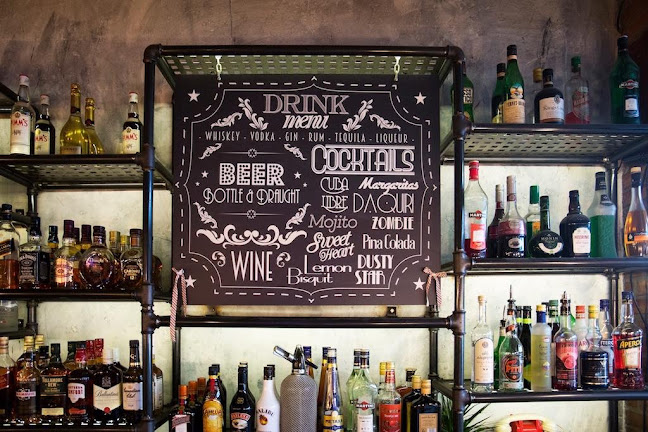 DRINK
menu
WHISKEY - VODKA - GIN - RUM - TEQUILA - LIQUEUR -
BEER
BOTTLE & DRAUGHT
WINE
COCKTAILS
CUBA LIBRE
Margaritas
DAQUIRI
Mojito
ZOMBIE
Sweet Heart
Pina Colada
Lemon Bisquit
DUSTY STAR
MALIBU
APEROL